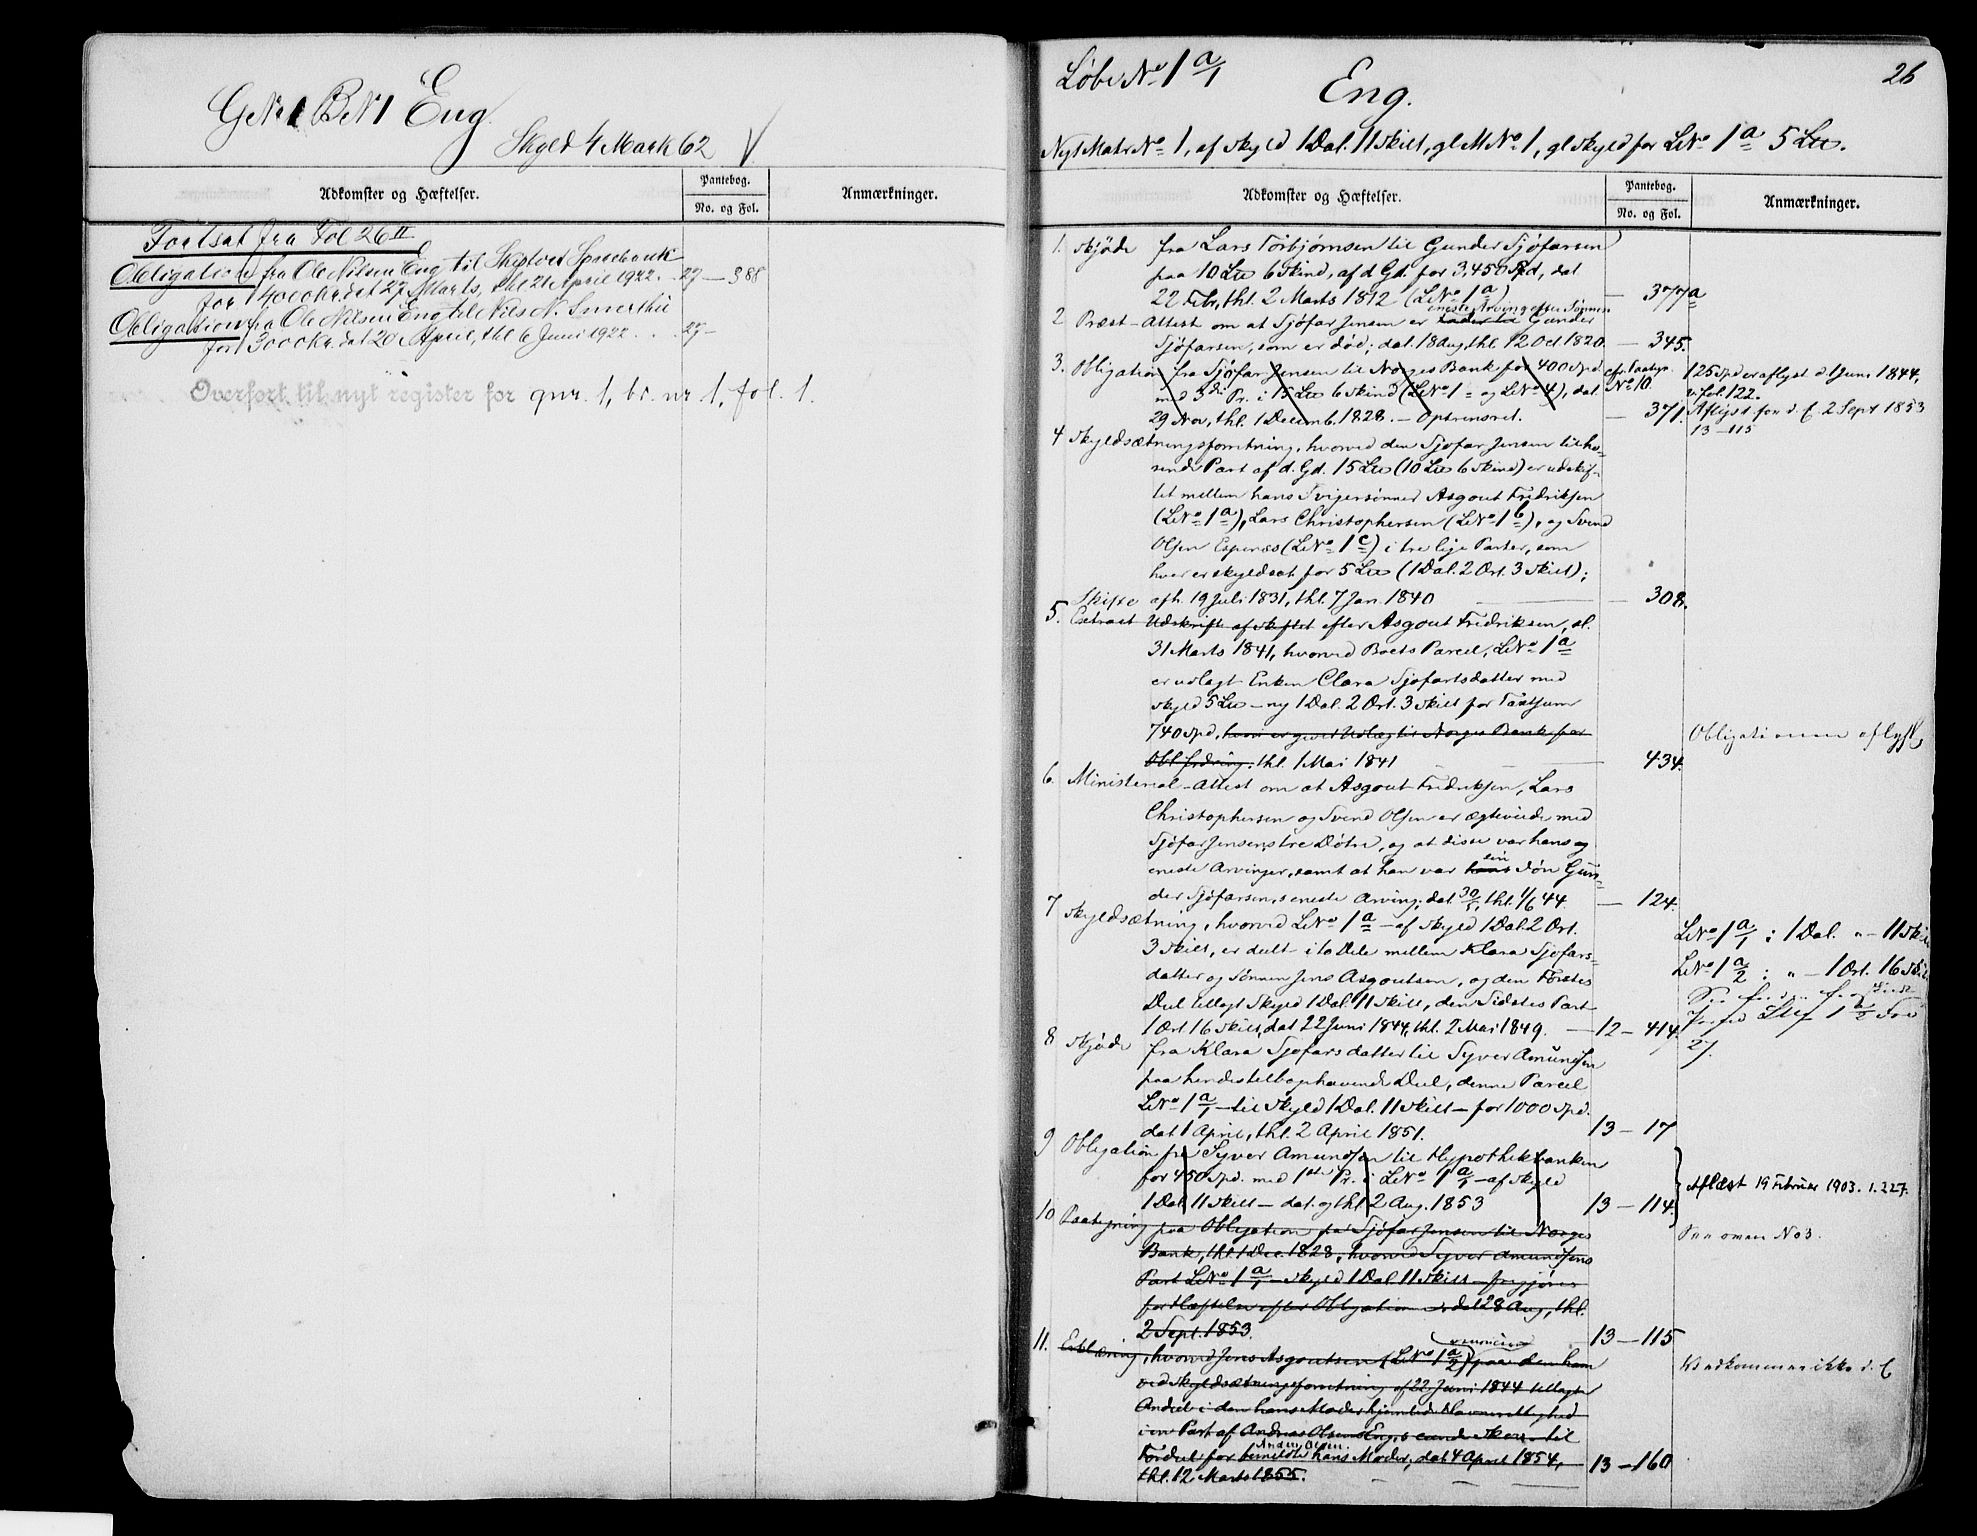 GNo 1 BNo 1 Eng.
Skyld 4 Mark 62 V
Adkomster og Hæftelser.
Pantebog.
No. og Fol.
Anmærkninger.
Fortsat fra Fol 26 II
Obligation fra Ole Nilsen Eng til Skiptvet Sparebank
for 14000 Kr. dat 27 Marts, thl 21 April 1922. 27 — 388
Obligation fra Ole Nilsen Eng til Nils N. Smerthu
for 3000 Kr. dat 20 April, thl 6 Juni 1922 . . 27 —
Overført til nyt register for gnr. 1, br. nr 1, fol. 1.
Løbe No 1 a/1
Eng.
26
Nyt Matr No 1, af Skyld 1 Dal. 11 Skill, gl M No 1, gl Skyld for LNo 1 a 5 L℔.
Adkomster og Hæftelser.
Pantebog.
No. og Fol.
Anmærkninger.
1. Skjøde fra Lars Torbjørnsen til Gunder Sjøfarsen
paa 10 L℔ 6 Skind, af d. Gd. for 3,450 Spd, dat
22 Febr, thl. 2 Marts 1812 (LNo 1 a) — 377a
eneste Arving efter Sønnen
2 Præst-Attest om at Sjøfar Jensen er Fader til Gunder
Sjøfarsen, som er død; dat. 18 Aug, thl. 12 Oct 1820. — 345.
3. Obligation fra Sjøfar Jensen til Norges Bank for 400 Spd. cfr. Paategn. 125 Spd er aflyst d 1 Juni 1844,
med 3die Pr. i 15 L℔ 6 Skind (LNo 1 = og LNo 4), dat. No 10. v. fol. 122.
29 Nov, thl. 1 Decemb. 1828. — Optrensret. — 371. Aflyst for d. E. 2 Sept 1853
13 — 115
4 Skyldsætningsforretning, hvorved den Sjøfar Jensen tilhø-
rende Part af d. Gd. 15 L℔ (10 L℔ 6 Skind) er udskif-
tet mellem hans Svigersønner Asgout Fridriksen
(LNo 1 a), Lars Christophersen (LNo 1 b), og Svend
Olsen Espenæs (LNo 1 c) i tre lige Parter, som
hver er skyldsat for 5 L℔ (1 Dal. 2 Ort. 3 Skill);
afh. 19 Juli 1831, thl. 7 Jan. 1840 — 308.
Skifte
5. Extract Udskrift af skiftet efter Asgout Fredriksen, sl.
31 Marts 1841, hvorved Boets Parcel, LNo 1 a
er udlagt Enken Clara Sjøfartsdatter med
Skyld 5 L℔ — ny 1 Dal. 2 Ort. 3 Skill for Taxtsum
740 Spd, hvori er givet Udlæg til Norges Bank for Obligationen aflyst,
Obl. fordring; thl. 1 Mai 1841 — 434.
6. Ministerial-Attest om at Asgout Fredriksen, Lars
Christophersen og Svend Olsen er ægteviede med
Sjøfar Jensens tre Døtre, og at disse var hans og
eneste Arvinger, samt at han var hans sin Søn Gun-
der Sjøfarsens eneste Arving; dat. 30/5, thl. 1/6 44. — 124.
7 Skyldsætning, hvorved LNo 1 a — af Skyld 1 Dal 2 Ort.
3 Skill, er deelt i to Dele mellem Klara Sjøfars-
datter og Sønnen Jens Asgoutsen, og den Førstes
Deel tillagt Skyld 1 Dal. 11 Skill, den Sidstes Part
1 Ort 16 Skill, dat 22 Juni 1844, thl. 2 Mai 1849. — 12 — 414.
LNo 1 a/1 : 1 Dal. " — 11 Skill
LNo 1 a/2 : " — 1 Ort. 16 Skill
1 a/2 Fol
27.
8 Skjøde fra Klara Sjøfarsdatter til Syver Amundsen
paa hendes tilbagehavende Deel, denne Parcel
LNo 1 a/1 — til Skyld 1 Dal. 11 Skill — for 1000 Spd.
dat 1 April, thl. 2 April 1851. 13 — 17
9 Obligation fra Syver Amundsen til Hypothekbanken
for 450 Spd. med 1ste Pr. i LNo 1 a/1 — af Skyld
1 Dal 11 Skill — dat. og thl 2 Aug. 1853 13 — 114. Aflæst 19 Februar 1903. 1.227.
10 Paategning paa Obligation fra Sjøfar Jensen til Norges See oven No 3.
Bank, thl. 1 Dec. 1828, hvorved Syver Amundsens
Part LNo 1 a/1 — Skyld 1 Dal 11 Skill — frigjøres
for Hæftelse efter Obligationen, dat 28 Aug, thl.
2 Sept. 1853. 13 — 115
11. Erklæring, hvorved Jens Asgoutsen (LNo 1 a/2) renuncierer paa den ham Vedkommer ikke d. E
ved Skyldsætningsforretning af 22 Juni 1844 tillagte
Andeel i den hans Moder hjemlede Havnerettighed
i en Part af Andreas Olsens Engs Skov til
Fordeel for bemeldte Anders Olsen hans Moder, dat 4 April 1854,
thl. 12 Marts 1855. — 13 — 160